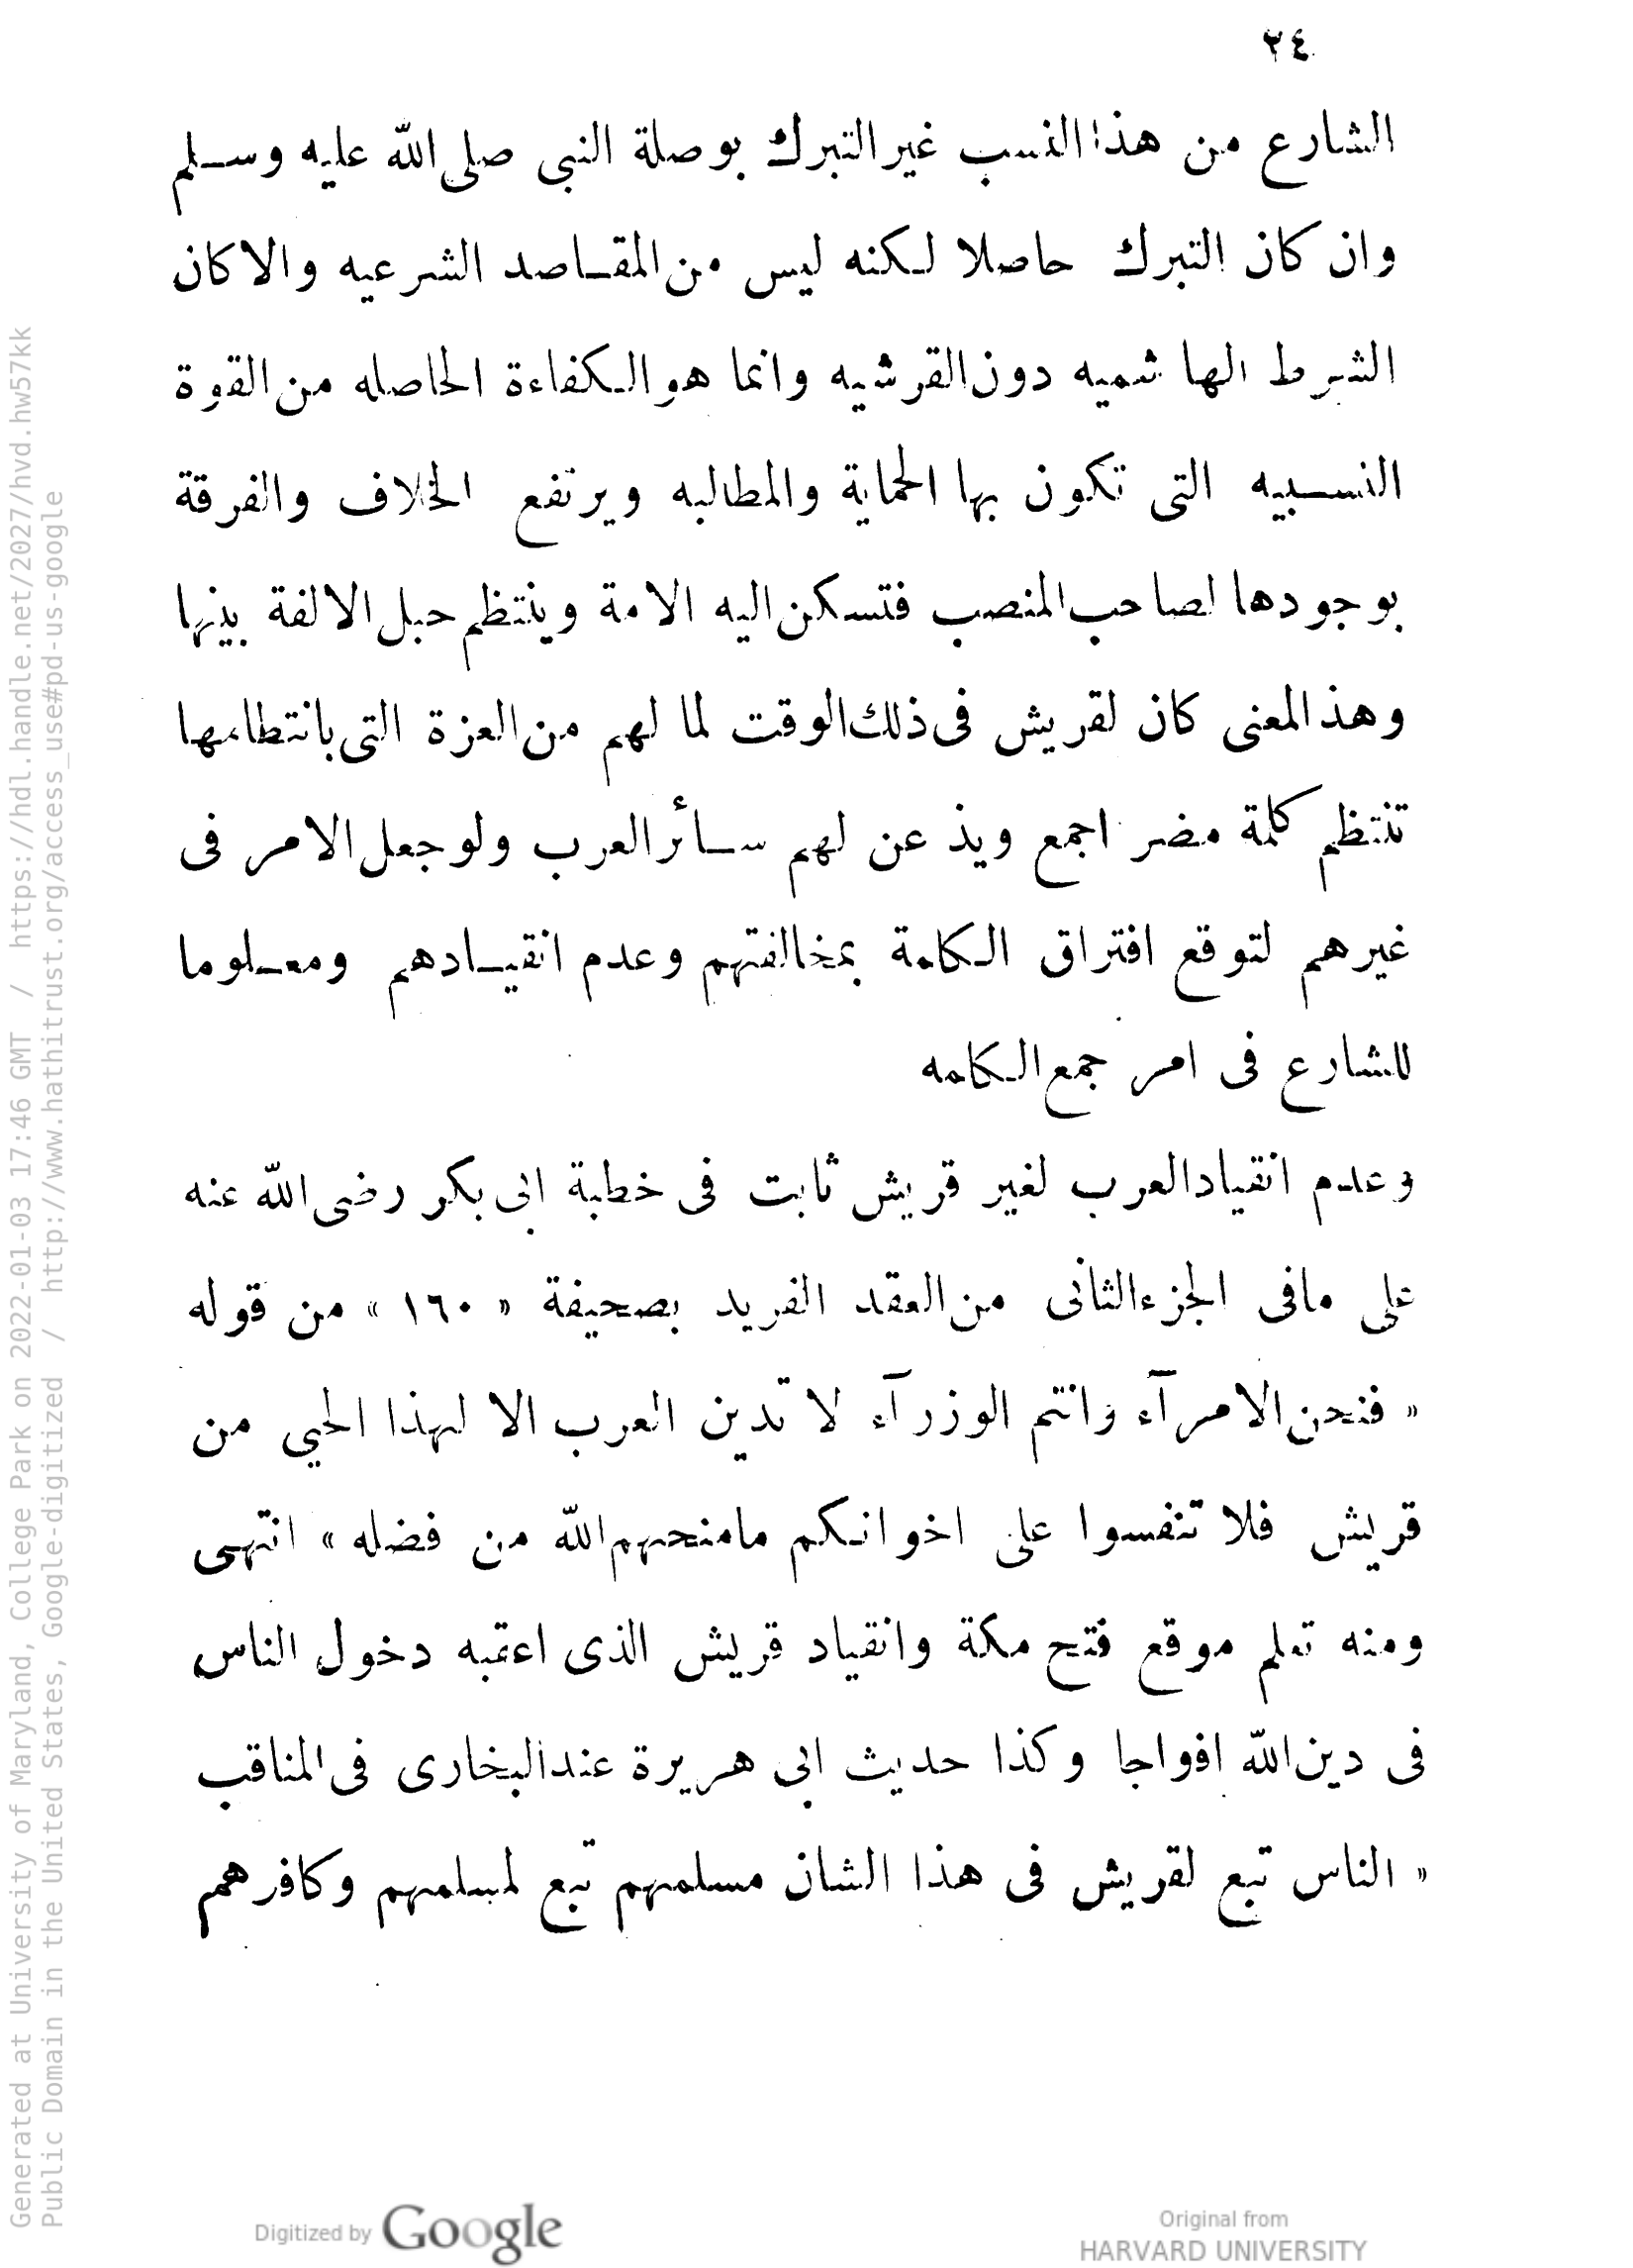 ٢٤
الشارع من هذا النسب غير التبرك بوصلة النبى صلى الله عليه وسلم
وان كان التبرك حاصلا لكنه ليس من المقاصد الشرعيه والا كان
الشرط الهاشميه دون القرشيه وانما هو الكفاءة الحاصله من القوة
النسبيه التى تكون بها الحماية والمطالبه ويرتفع الخلاف والفرقة
بوجودها لصاحب المنصب فتسكن اليه الامة وينتظم حبل الالفة بينها
وهذ المعنى كان لقريش فى ذلك الوقت لما لهم من العزة التى بانتطامها
تنتظم كلمة مضر اجمع ويذعن لهم سائر العرب ولو جعل الامر فى
غيرهم لتوقع افتراق الكلمة بمخالفتهم وعدم انقيادهم ومعلوما
للشارع فى امر جمع الكلمه
وعدم انقياد العرب لغير قريش ثابت فى خطبة ابى بكر رضى الله عنه
على مافى الجزء الثانى من العقد الفريد بصحيفة « ١٦٠ » من قوله
« فنحن الامرآء وانتم الوزرآء لا تدين العرب الا لهذا الحي من
قريش فلا تنفسوا على اخوانكم مامنحهم الله من فضله » انتهى
ومنه تعلم موقع فتح مكة وانقياد قريش الذى اعقبه دخول الناس
فى دين الله افواجا وكذا حديث ابى هريرة عند البخارى فى المناقب
« الناس تبع لقريش فى هذا الشان مسلمهم تبع لمسلمهم وكافرهم
Generated at University of Maryland, College Park on 2022-01-03 17:46 GMT / https://hdl.handle.net/2027/hvd.hw57kk
Public Domain in the United States, Google-digitized / http://www.hathitrust.org/access_use#pd-us-google
Digitized by Google
Original from
HARVARD UNIVERSITY